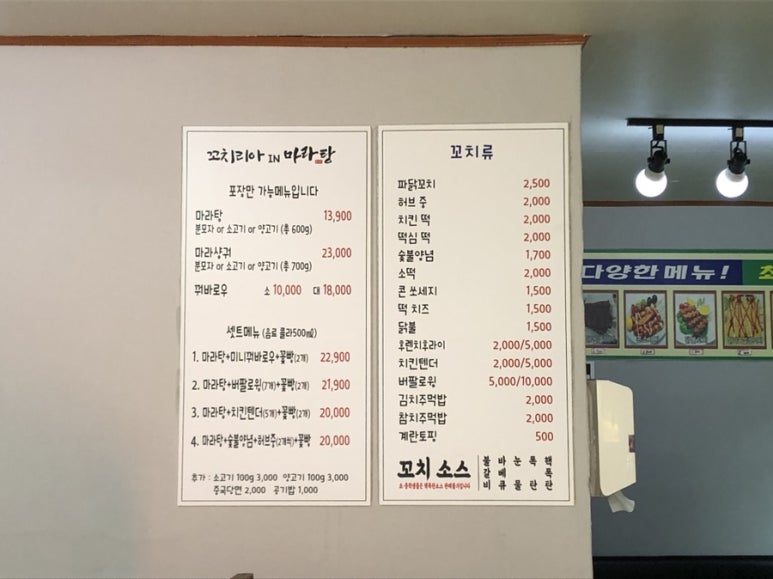 꼬치리아 IN 마라탕
포장만 가능메뉴입니다
마라탕 13,900
분모자 or 소고기 or 양고기 (총 600g)
마라샹궈 23,000
분모자 or 소고기 or 양고기 (총 700g)
꿔바로우 소 10,000 대 18,000
셋트메뉴 (음료 콜라500ml)
1. 마라탕+미니꿔바로우+꽃빵(2개) 22,900
2. 마라탕+버팔로윙(7개)+꽃빵(2개) 21,900
3. 마라탕+치킨텐더(5개)+꽃빵(2개) 20,000
4. 마라탕+숯불양념+허브중(2개씩)+꽃빵 20,000
추가 : 소고기 100g 3,000 양고기 100g 3,000
중국당면 2,000 공기밥 1,000
꼬치류
파닭꼬치 2,500
허브 중 2,000
치킨 떡 2,000
떡심 떡 2,000
숯불양념 1,700
소떡 2,000
콘 쏘세지 1,500
떡 치즈 1,500
닭불 1,500
후렌치후라이 2,000/5,000
치킨텐더 2,000/5,000
버팔로윙 5,000/10,000
김치주먹밥 2,000
참치주먹밥 2,000
계란토핑 500
꼬치 소스
불갈비
바베큐
눈물
폭탄
핵폭탄
다양한 메뉴!